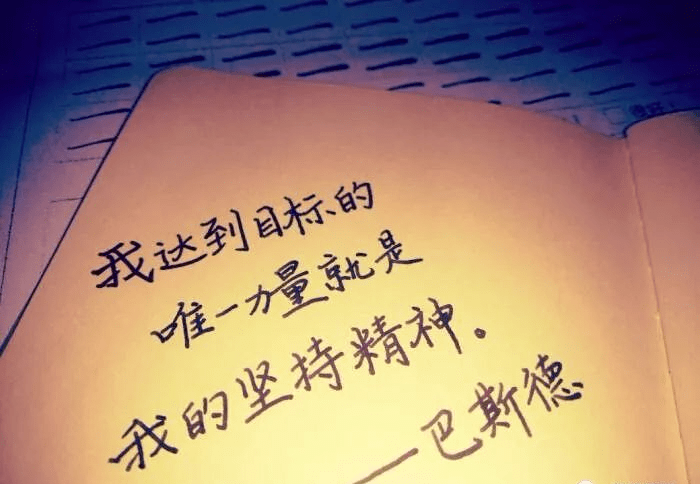 我达到目标的
唯一力量就是
我的坚持精神。
——巴斯德